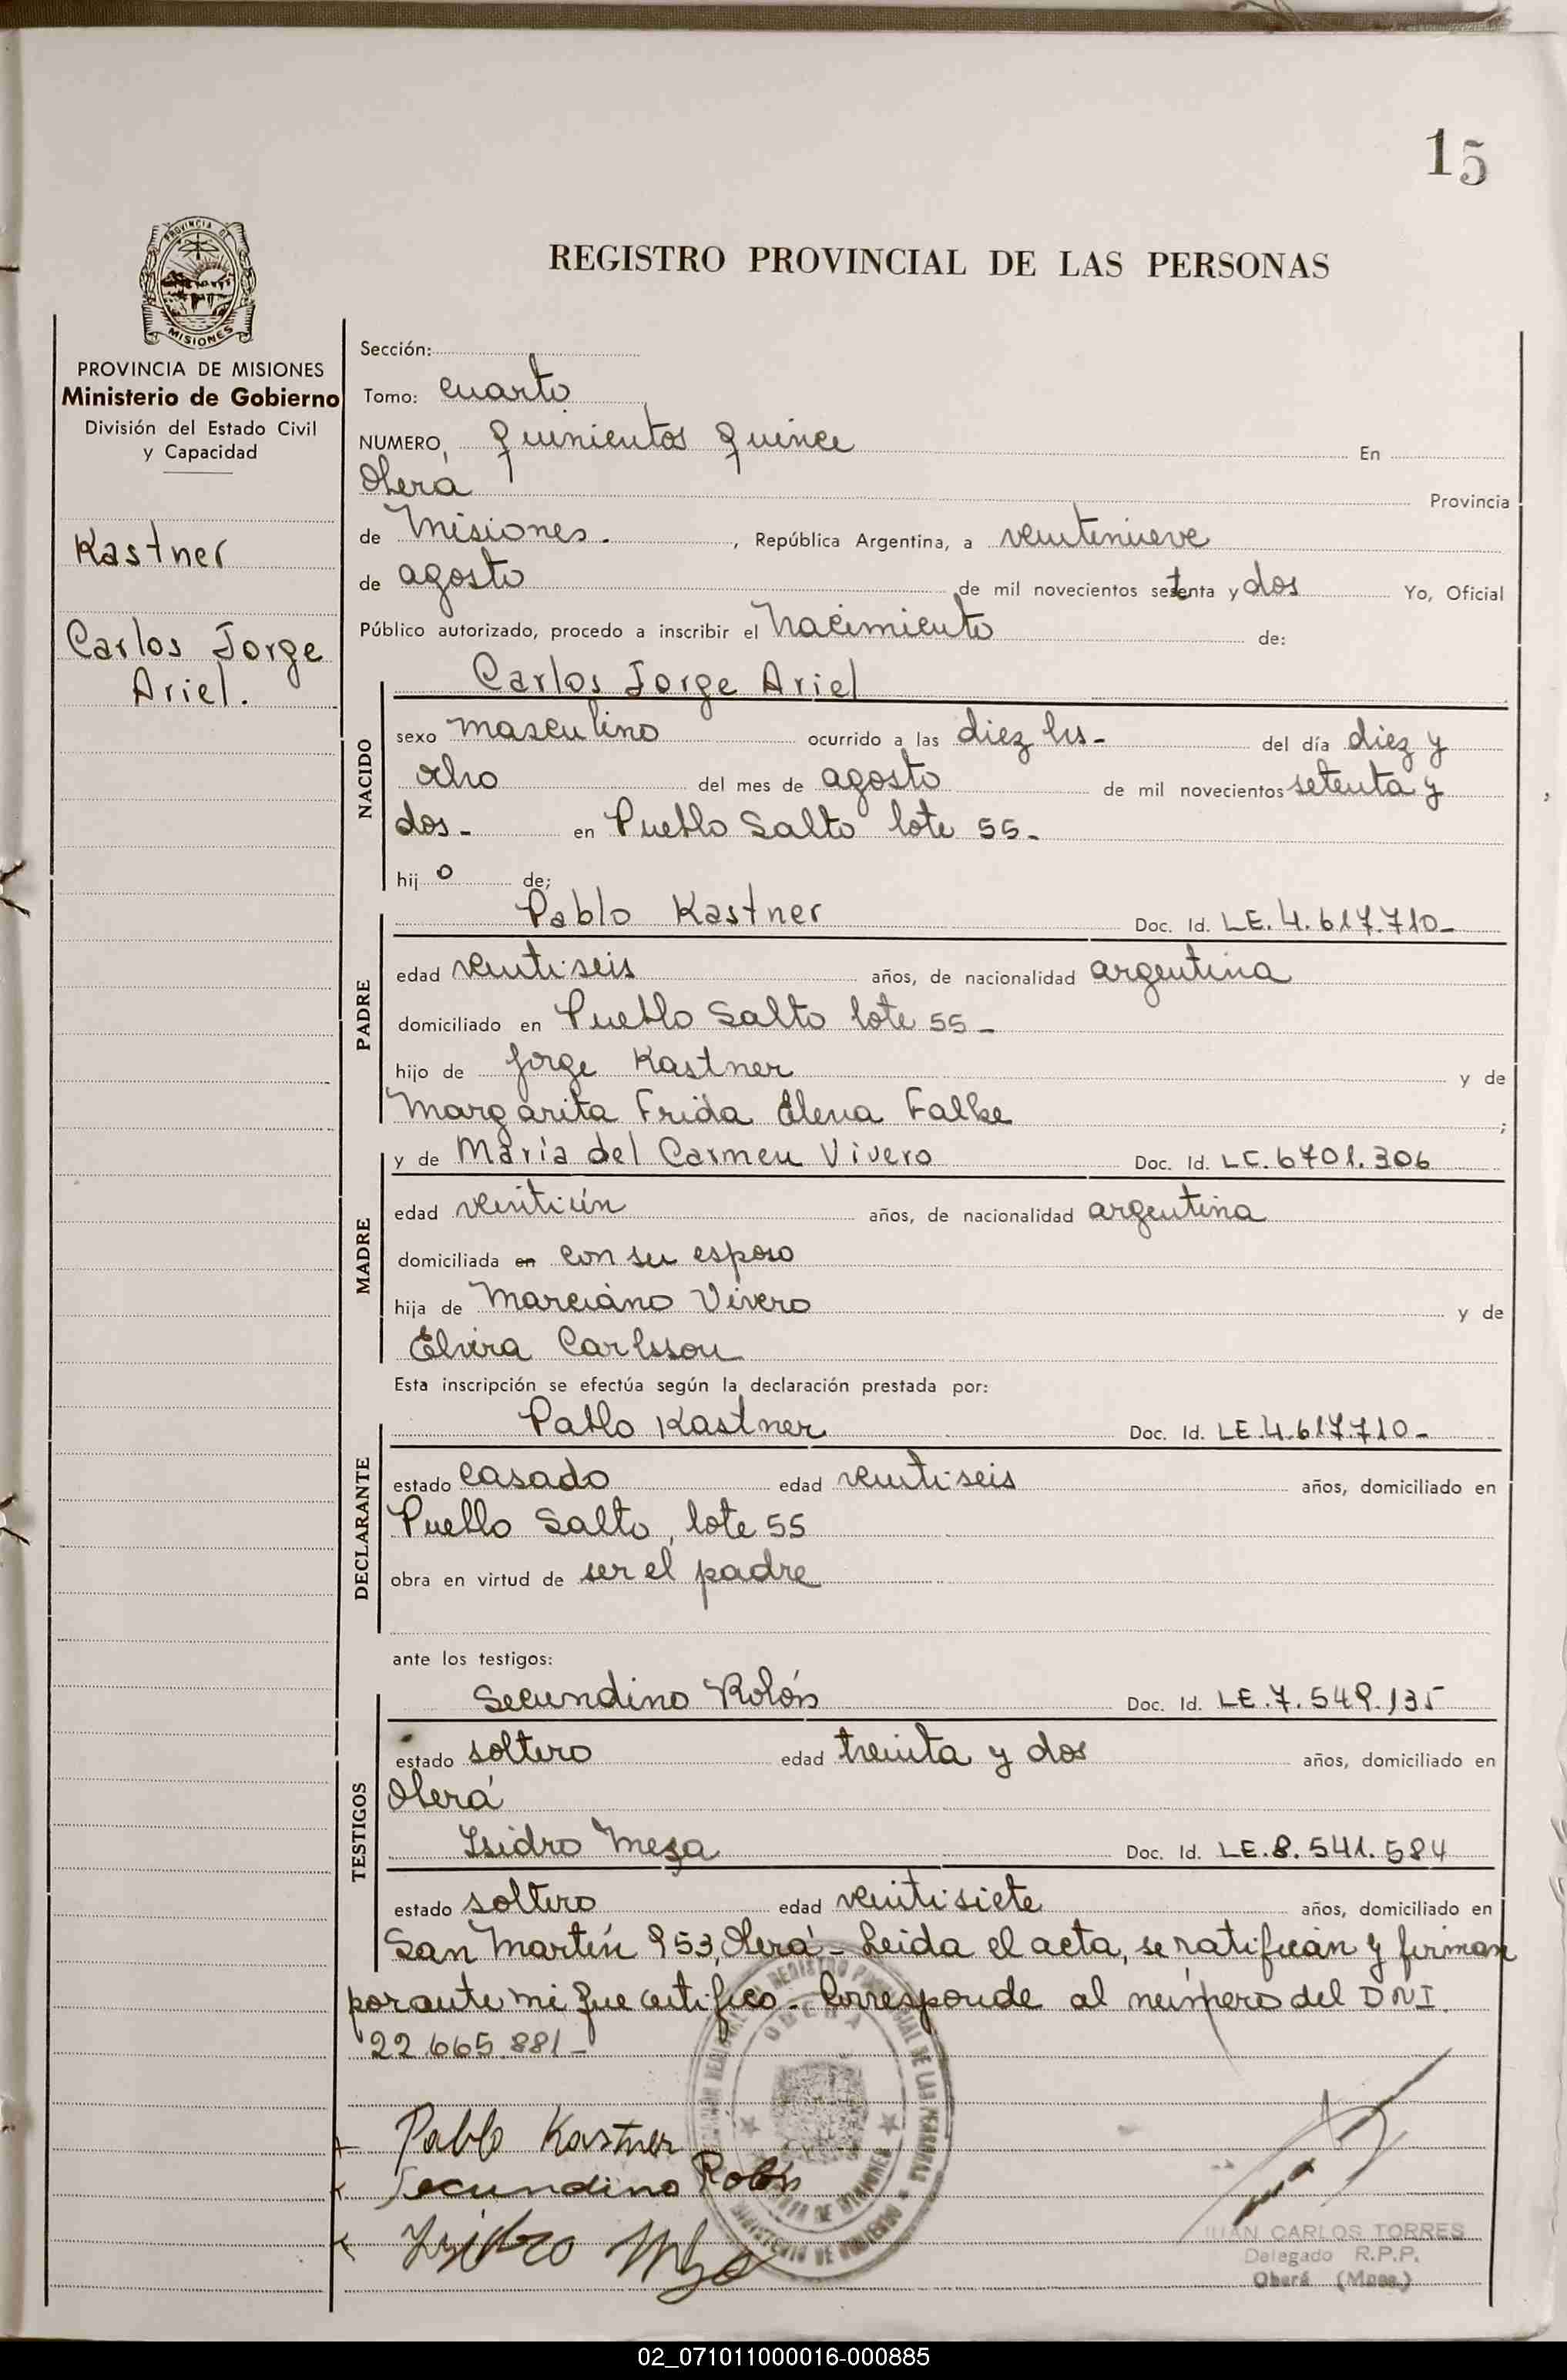 15
PROVINCIA DE
MISIONES
REGISTRO PROVINCIAL DE LAS PERSONAS
PROVINCIA DE MISIONES
Ministerio de Gobierno
División del Estado Civil
y Capacidad
Kastner
Carlos Jorge
Ariel.
Sección:
Tomo: cuarto
NUMERO, quinientos quince En
Oberá Provincia
de Misiones. , República Argentina, a veintenueve
de agosto de mil novecientos setenta y dos Yo, Oficial
Público autorizado, procedo a inscribir el nacimiento de:
NACIDO
Carlos Jorge Ariel
sexo masculino ocurrido a las diez hs- del día diez y
ocho del mes de agosto de mil novecientos setenta y
dos- en Pueblo Salto lote 55-
hij o de;
PADRE
Pablo Kastner Doc. Id. LE. 4.617.710-
edad veintiseis años, de nacionalidad argentina
domiciliado en Pueblo Salto lote 55-
hijo de Jorge Kastner y de
Margarita Frida Elena Falke ;
MADRE
y de María del Carmen Vivero Doc. Id. LC. 6701.306
edad veintiún años, de nacionalidad argentina
domiciliada en con su esposo
hija de Marciano Vivero y de
Elvira Carlsson
Esta inscripción se efectúa según la declaración prestada por:
DECLARANTE
Pablo Kastner Doc. Id. LE.4.617.710-
estado casado edad veintiseis años, domiciliado en
Pueblo Salto, lote 55
obra en virtud de ser el padre
ante los testigos:
TESTIGOS
Secundino Rolón Doc. Id. LE.7.549.135
estado soltero edad treinta y dos años, domiciliado en
Oberá
Isidro Meza Doc. Id. LE.8.541.584
estado soltero edad veintisiete años, domiciliado en
San Martín 953, Oberá- Leida el acta, se ratifican y firman
por ante mi que certifico- Corresponde al número del DNI.
22.665.881-
OBERA
Pablo Kastner
Secundino Rolón
Isidro Meza
JUAN CARLOS TORRES
Delegado R.P.P.
Oberá (Mnes.)
02_071011000016-000885